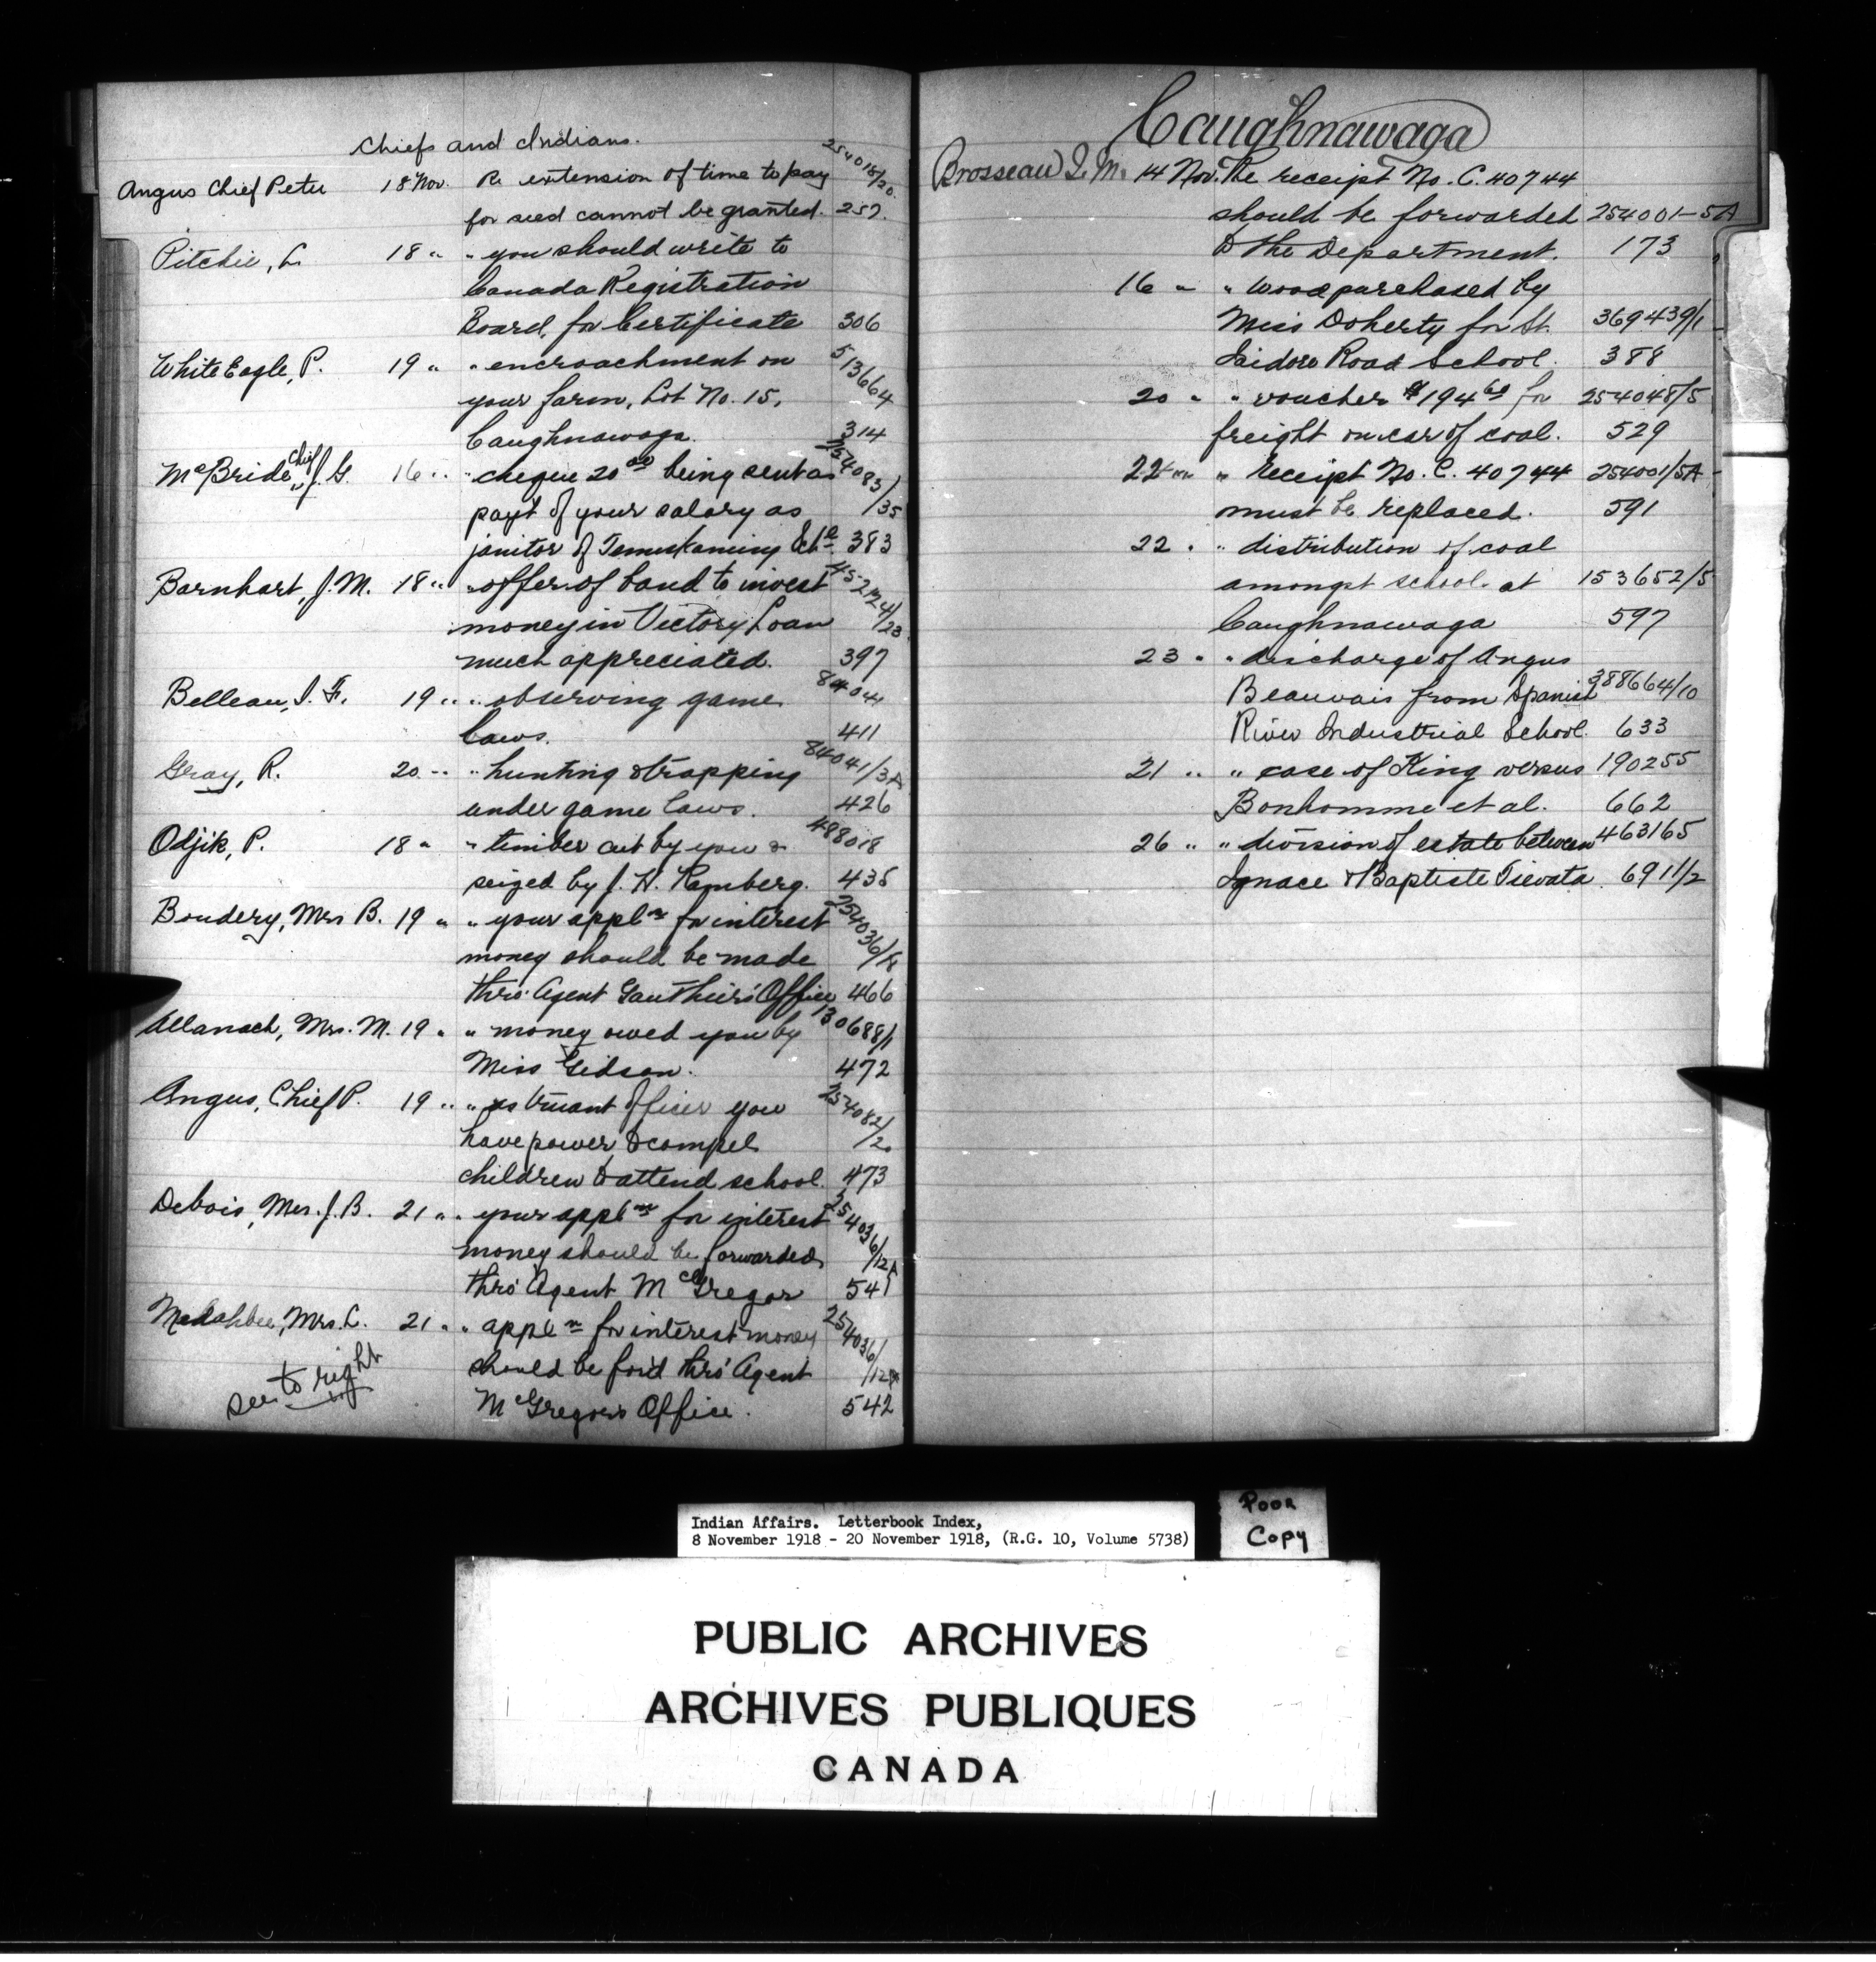 Chiefs and Indians.
Angus Chief Peter 18 Nov. Re extension of time to pay 254018/20
for seed cannot be granted. 257.
Pitchie, L. 18 " " you should write to
Canada Registration
Board, for Certificate 306
White Eagle, P. 19 " " encroachment on 513664
your farm, Lot No. 15,
Caughnawaga. 314
McBride, Chief J. G. 16 " " cheque 20 00 being sent as 254083/35
payt of your salary as
janitor of Temiskaming Schl 383
Barnhart, J. M. 18 " " offer of band to invest 452124/23
money in Victory Loan
much appreciated. 397
Belleau, J. F. 19 " " observing game 84041
laws. 411
Gray, R. 20 " " hunting & trapping 84041/3A
under game laws. 426
Odjik, P. 18 " " timber cut by you & 488018
seized by J. H. Ramberg. 435
Boudery, Mrs B. 19 " " your appln for interest 254036/8
money should be made
thro' Agent Gauthier's Office 466
Allanach, Mrs. M. 19 " " money owed you by 130688/1
Miss Gidson. 472
Angus, Chief P. 19 " " as truant officer you 254082/2
have power to compel
children to attend school. 473
Debois, Mrs. J. B. 21 " " your appln for interest 254036/12A
money should be forwarded
thro' Agent McGregor 541
Mrs. L. 21 " " appln for interest money 254036/12A
should be for'd thro' Agent
McGregor's Office. 542
see to right
Caughnawaga
Brosseau J. M. 14 Nov. Re receipt No. C. 40744
should be forwarded 254001-5A
to the Department. 173
16 " " wood purchased by
Miss Doherty for St. 369439/1
Isidore Road School. 388
20 " " voucher $194 60 for 254048/5
freight on car of coal. 529
22 " " receipt No. C. 40744 254001/5A
must be replaced. 591
22 " " distribution of coal
amongst school at 153652/5
Caughnawaga 597
23 " " discharge of Angus
Beauvais from Spanish 388664/10
River Industrial School. 633
21 " " case of King versus 190255
Bonhomme et al. 662
26 " " division of estate between 463165
Ignace & Baptiste Tievata. 691 1/2
Indian Affairs. Letterbook Index,
8 November 1918 - 20 November 1918, (R.G. 10, Volume 5738)
Poor
Copy
PUBLIC ARCHIVES
ARCHIVES PUBLIQUES
CANADA